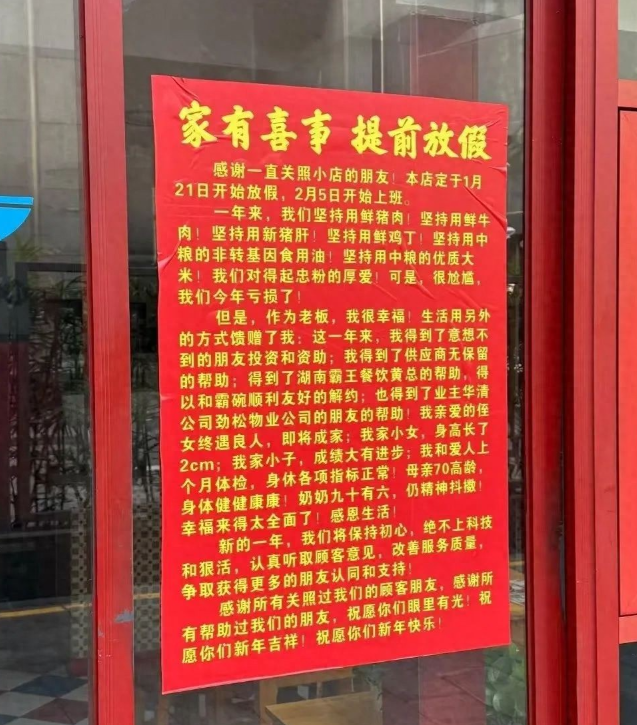 家有喜事 提前放假
感谢一直关照小店的朋友！本店定于1月
21日开始放假，2月5日开始上班。
一年来，我们坚持用鲜猪肉！坚持用鲜牛
肉！坚持用新猪肝！坚持用鲜鸡丁！坚持用中
粮的非转基因食用油！坚持用中粮的优质大
米！我们对得起忠粉的厚爱！可是，很尴尬，
我们今年亏损了！
但是，作为老板，我很幸福！生活用另外
的方式馈赠了我：这一年来，我得到了意想不
到的朋友投资和资助；我得到了供应商无保留
的帮助；得到了湖南霸王餐饮黄总的帮助，得
以和霸碗顺利友好的解约；也得到了业主华清
公司劲松物业公司的朋友的帮助！我亲爱的侄
女终遇良人，即将成家；我家小女，身高长了
2cm；我家小子，成绩大有进步；我和爱人上
个月体检，身体各项指标正常！母亲70高龄，
身体健健康康！奶奶九十有六，仍精神抖擞！
幸福来得太全面了！感恩生活！
新的一年，我们将保持初心，绝不上科技
和狠活，认真听取顾客意见，改善服务质量，
争取获得更多的朋友认同和支持！
感谢所有关照过我们的顾客朋友，感谢所
有帮助过我们的朋友，祝愿你们眼里有光！祝
愿你们新年吉祥！祝愿你们新年快乐！